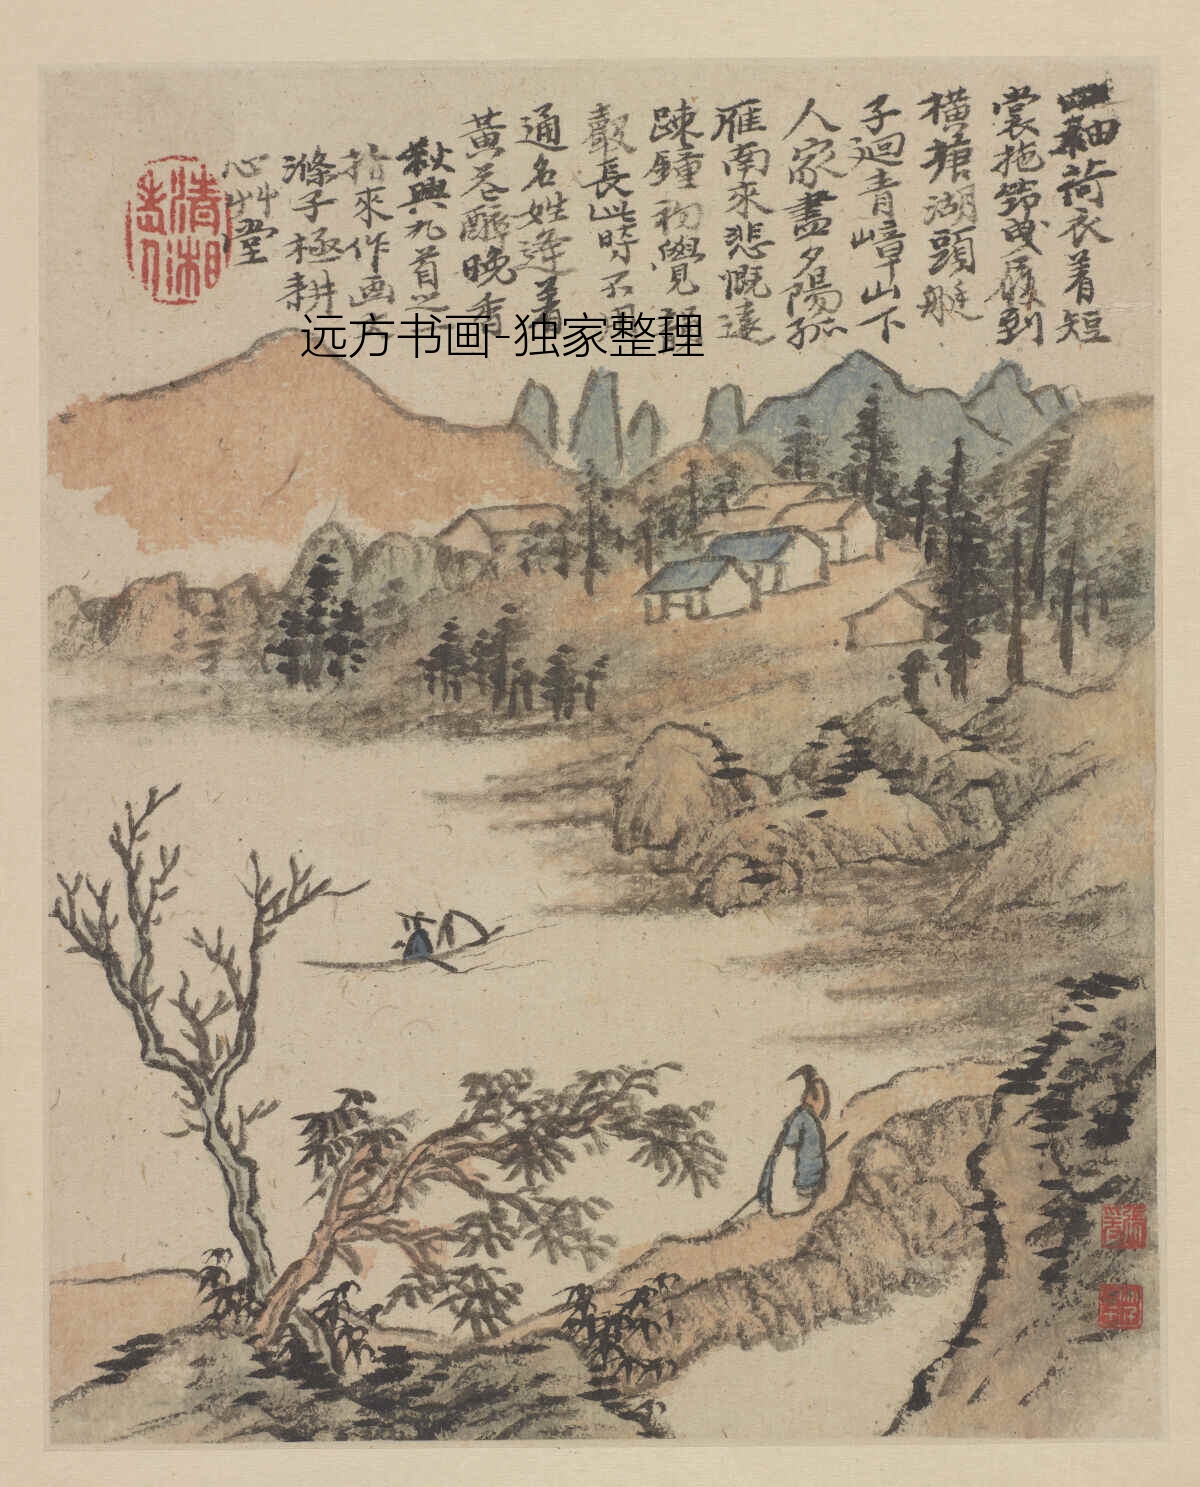 袖荷衣着短
裳拖筇曳屐到
橫塘湖頭艇
子迴青嶂山下
人家盡夕陽孤
雁南來悲慨遠
踈鐘初覺
聲長此時不
通名姓逢着
黃花醉晚香
秋興九首
指來作画大
滌子極耕
心艸堂
清湘老人
远方书画-独家整理